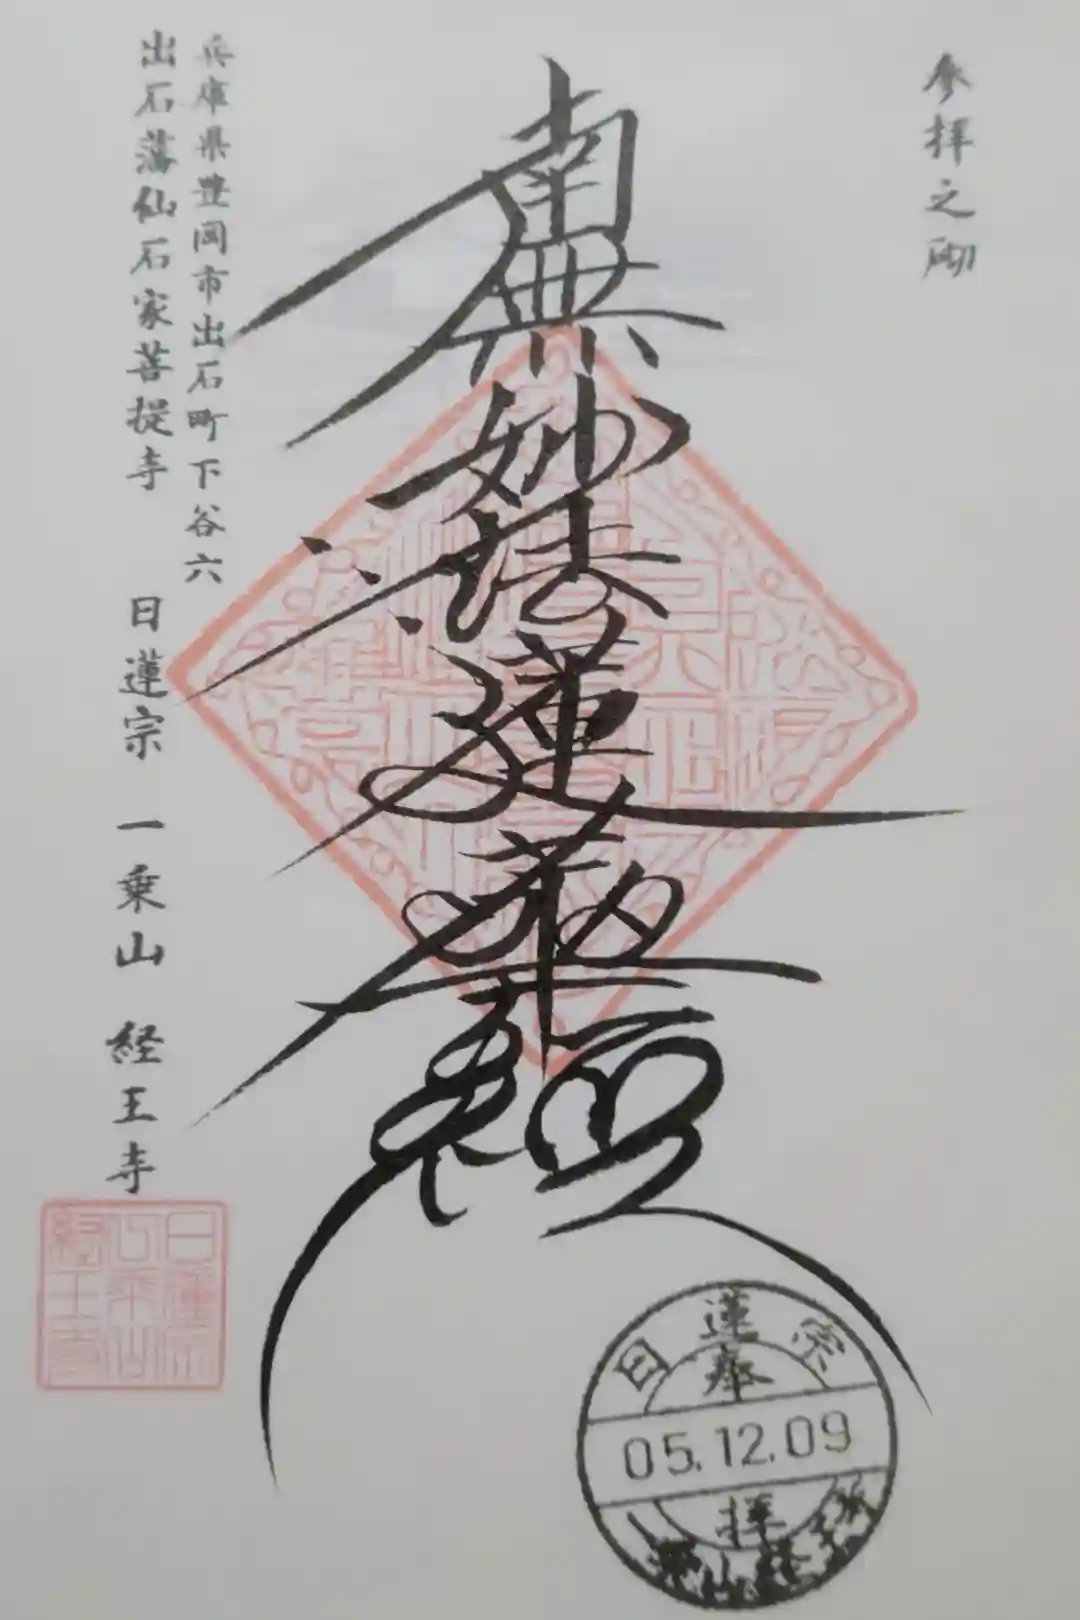 参拝之砌
南無妙法蓮華経
兵庫県豊岡市出石町下谷六
出石藩仙石家菩提寺 日蓮宗 一乗山 経王寺
日蓮宗
一乗山
経王寺
日蓮宗
奉
05.12.09
拝
一乗山経王寺